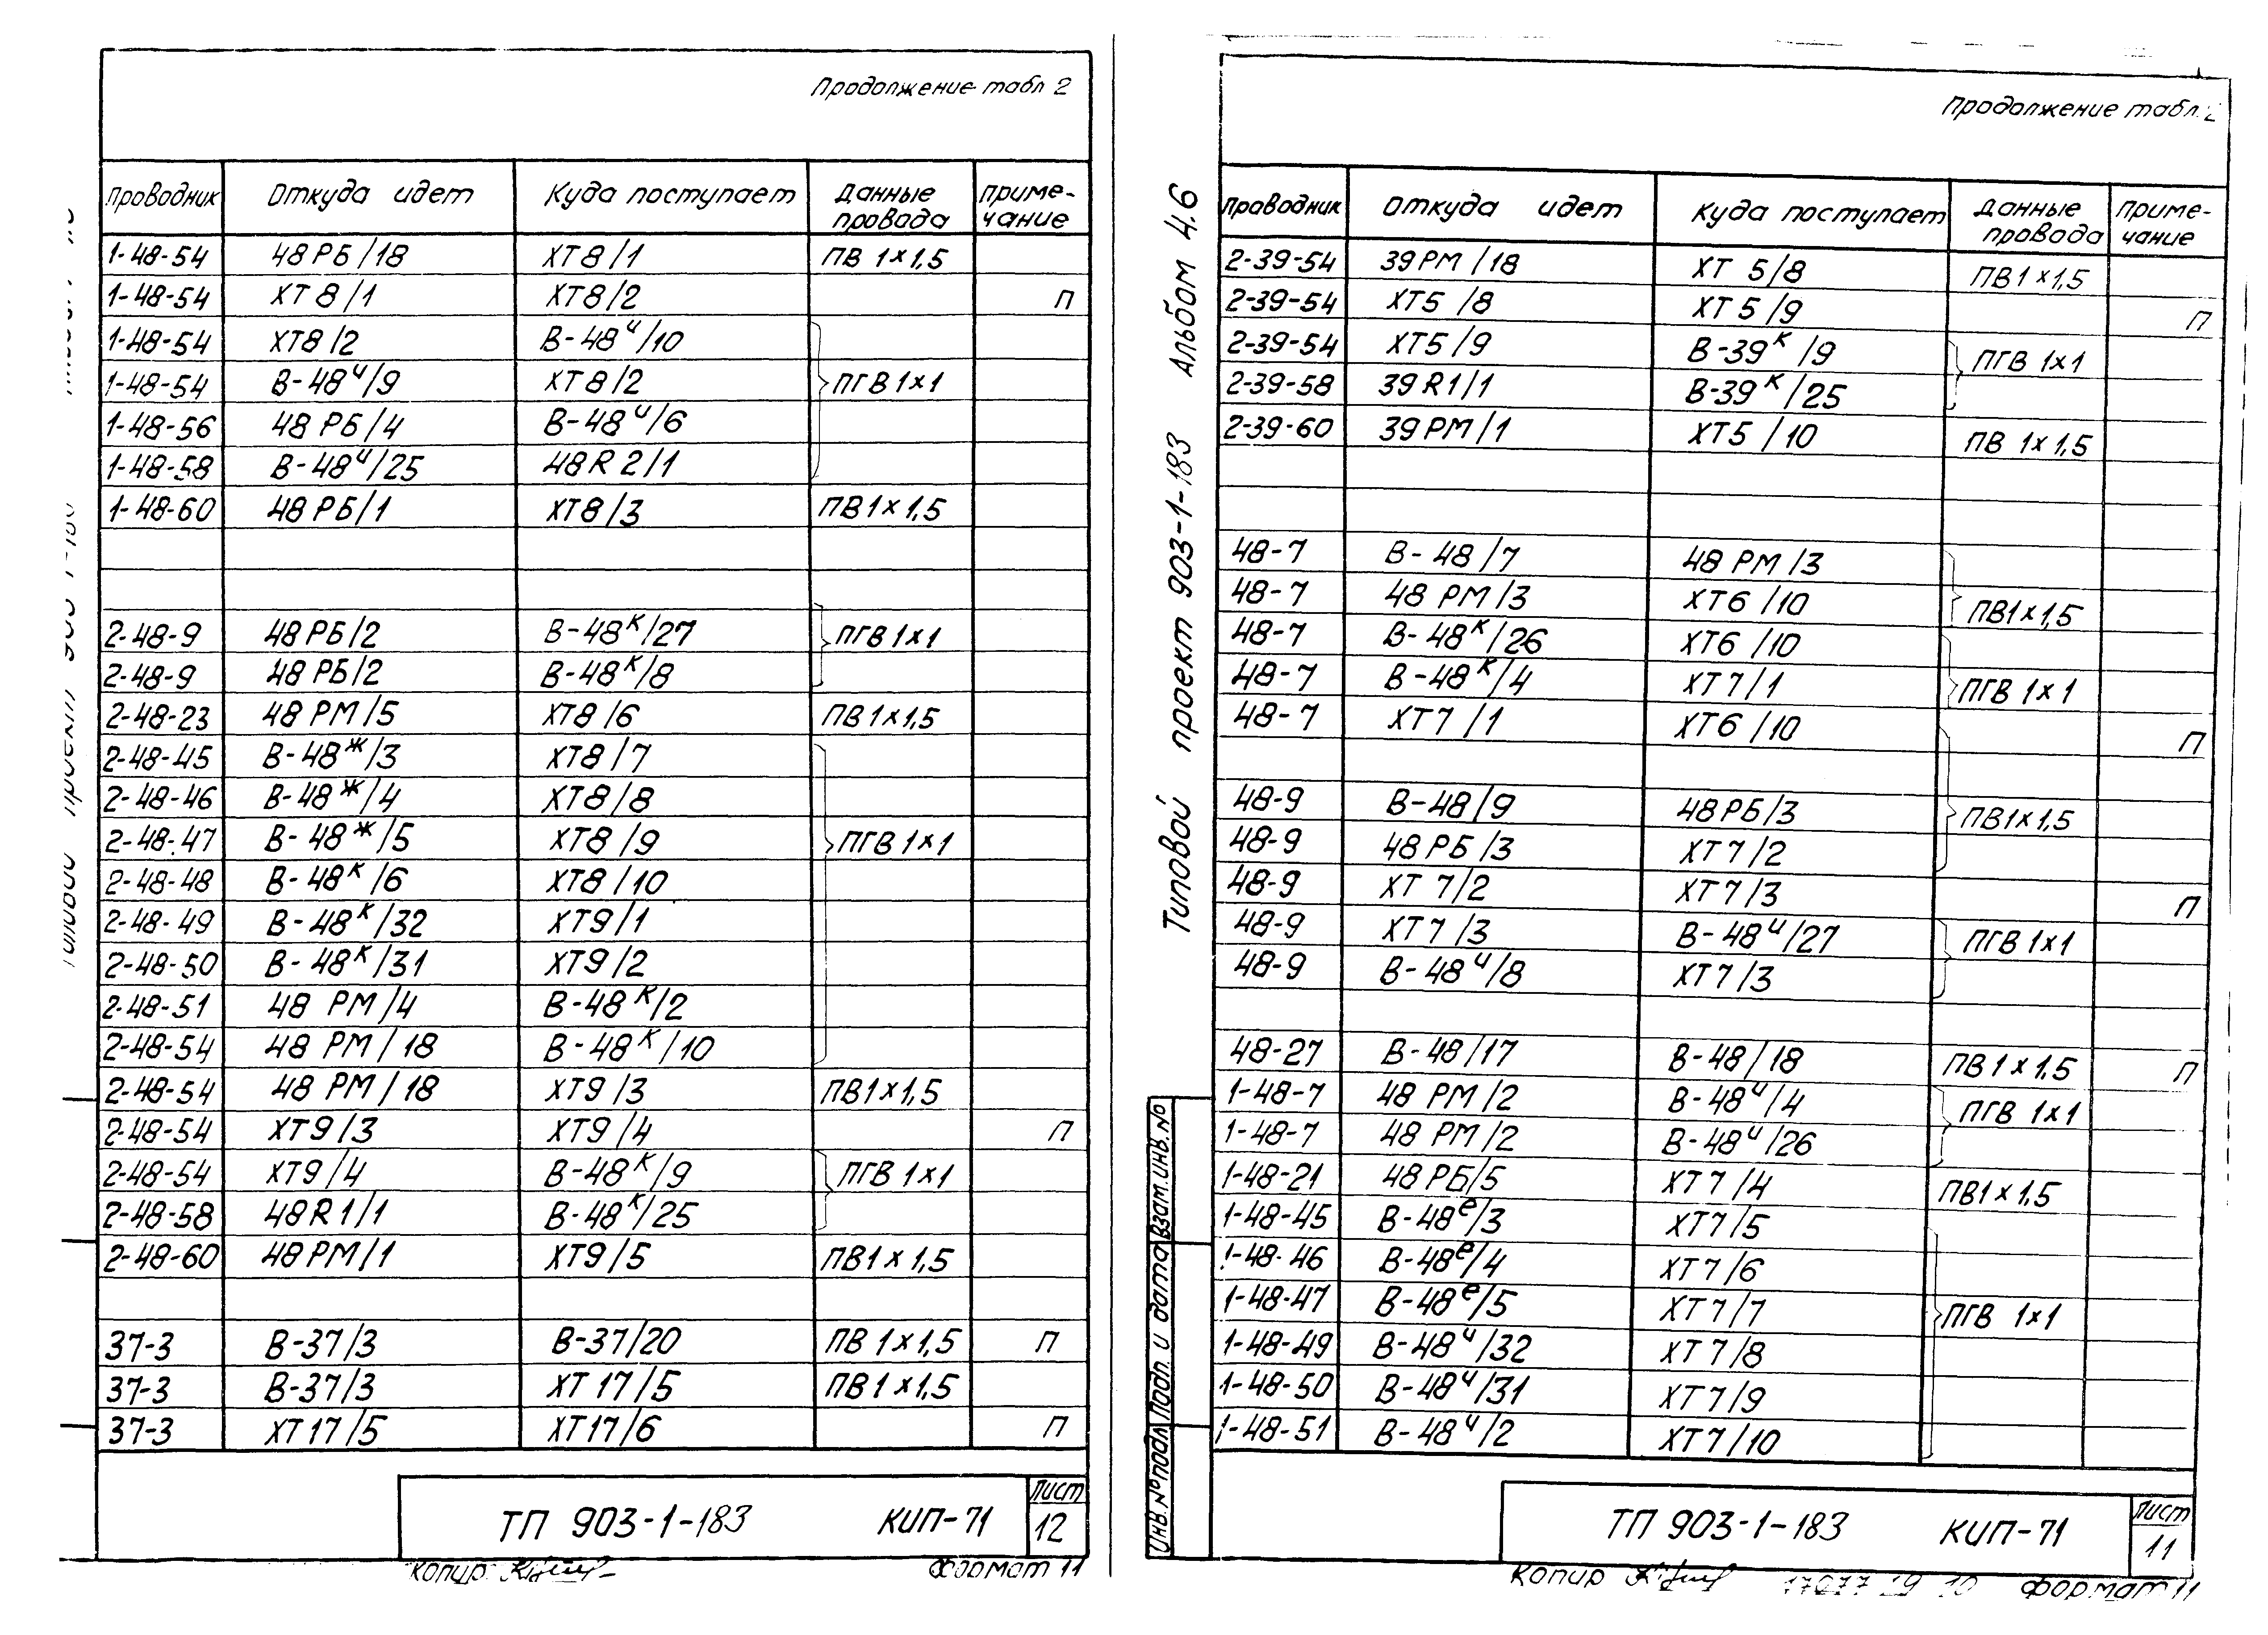 Продолжение табл 2
Проводник Откуда идет Куда поступает Данные провода Приме-чание
1-48-54 48РБ/18 ХТ8/1 ПВ 1×1,5
1-48-54 ХТ8/1 ХТ8/2 П
1-48-54 ХТ8/2 В-48ч/10
1-48-54 В-48ч/9 ХТ8/2 ПГВ 1×1
1-48-56 48РБ/4 В-48ч/6
1-48-58 В-48ч/25 48R2/1
1-48-60 48РБ/1 ХТ8/3 ПВ1×1,5
2-48-9 48РБ/2 В-48к/27 ПГВ 1×1
2-48-9 48РБ/2 В-48к/8
2-48-23 48РМ/5 ХТ8/6 ПВ1×1,5
2-48-45 В-48ж/3 ХТ8/7
2-48-46 В-48ж/4 ХТ8/8
2-48-47 В-48ж/5 ХТ8/9 ПГВ 1×1
2-48-48 В-48к/6 ХТ8/10
2-48-49 В-48к/32 ХТ9/1
2-48-50 В-48к/31 ХТ9/2
2-48-51 48РМ/4 В-48к/2
2-48-54 48РМ/18 В-48к/10
2-48-54 48РМ/18 ХТ9/3 ПВ1×1,5
2-48-54 ХТ9/3 ХТ9/4 П
2-48-54 ХТ9/4 В-48к/9 ПГВ 1×1
2-48-58 48R1/1 В-48к/25
2-48-60 48РМ/1 ХТ9/5 ПВ1×1,5
37-3 В-37/3 В-37/20 ПВ 1×1,5 П
37-3 В-37/3 ХТ17/5 ПВ1×1,5
37-3 ХТ17/5 ХТ17/6 П
ТП 903-1-183 КИП-71 Лист 12
Копир Формат 11
Типовой проект 903-1-183 Альбом 4.6
Продолжение табл. 2
Проводник Откуда идет Куда поступает Данные провода Приме-чание
2-39-54 39РМ/18 ХТ5/8 ПВ1×1,5
2-39-54 ХТ5/8 ХТ5/9 П
2-39-54 ХТ5/9 В-39к/9 ПГВ 1×1
2-39-58 39R1/1 В-39к/25
2-39-60 39РМ/1 ХТ5/10 ПВ 1×1,5
48-7 В-48/7 48РМ/3
48-7 48РМ/3 ХТ6/10 ПВ1×1,5
48-7 В-48к/26 ХТ6/10
48-7 В-48к/4 ХТ7/1 ПГВ 1×1
48-7 ХТ7/1 ХТ6/10 П
48-9 В-48/9 48РБ/3 ПВ1×1,5
48-9 48РБ/3 ХТ7/2
48-9 ХТ7/2 ХТ7/3 П
48-9 ХТ7/3 В-48ч/27 ПГВ 1×1
48-9 В-48ч/8 ХТ7/3
48-27 В-48/17 В-48/18 ПВ1×1,5 П
1-48-7 48РМ/2 В-48ч/4 ПГВ 1×1
1-48-7 48РМ/2 В-48ч/26
1-48-21 48РБ/5 ХТ7/4 ПВ1×1,5
1-48-45 В-48е/3 ХТ7/5
1-48-46 В-48е/4 ХТ7/6
1-48-47 В-48е/5 ХТ7/7 ПГВ 1×1
1-48-49 В-48ч/32 ХТ7/8
1-48-50 В-48ч/31 ХТ7/9
1-48-51 В-48ч/2 ХТ7/10
Инв. № подл. Подп. и дата Взам. инв. №
ТП 903-1-183 КИП-71 Лист 11
Копир Формат 11